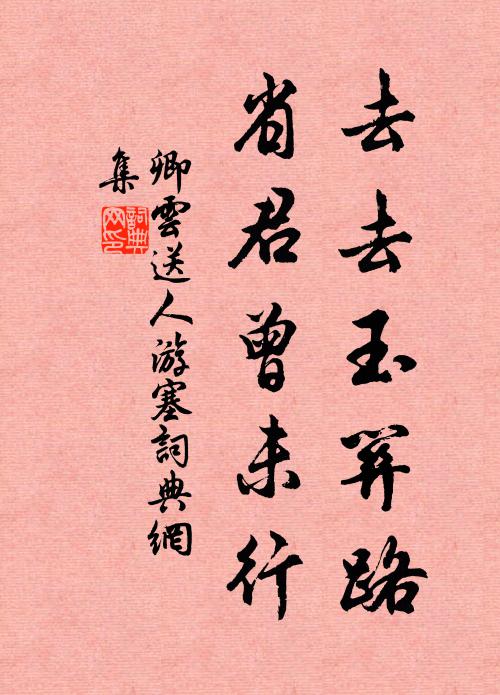 去去玉關路
省君曾未行
卿雲送人游塞詞典網
集
詞典
网印